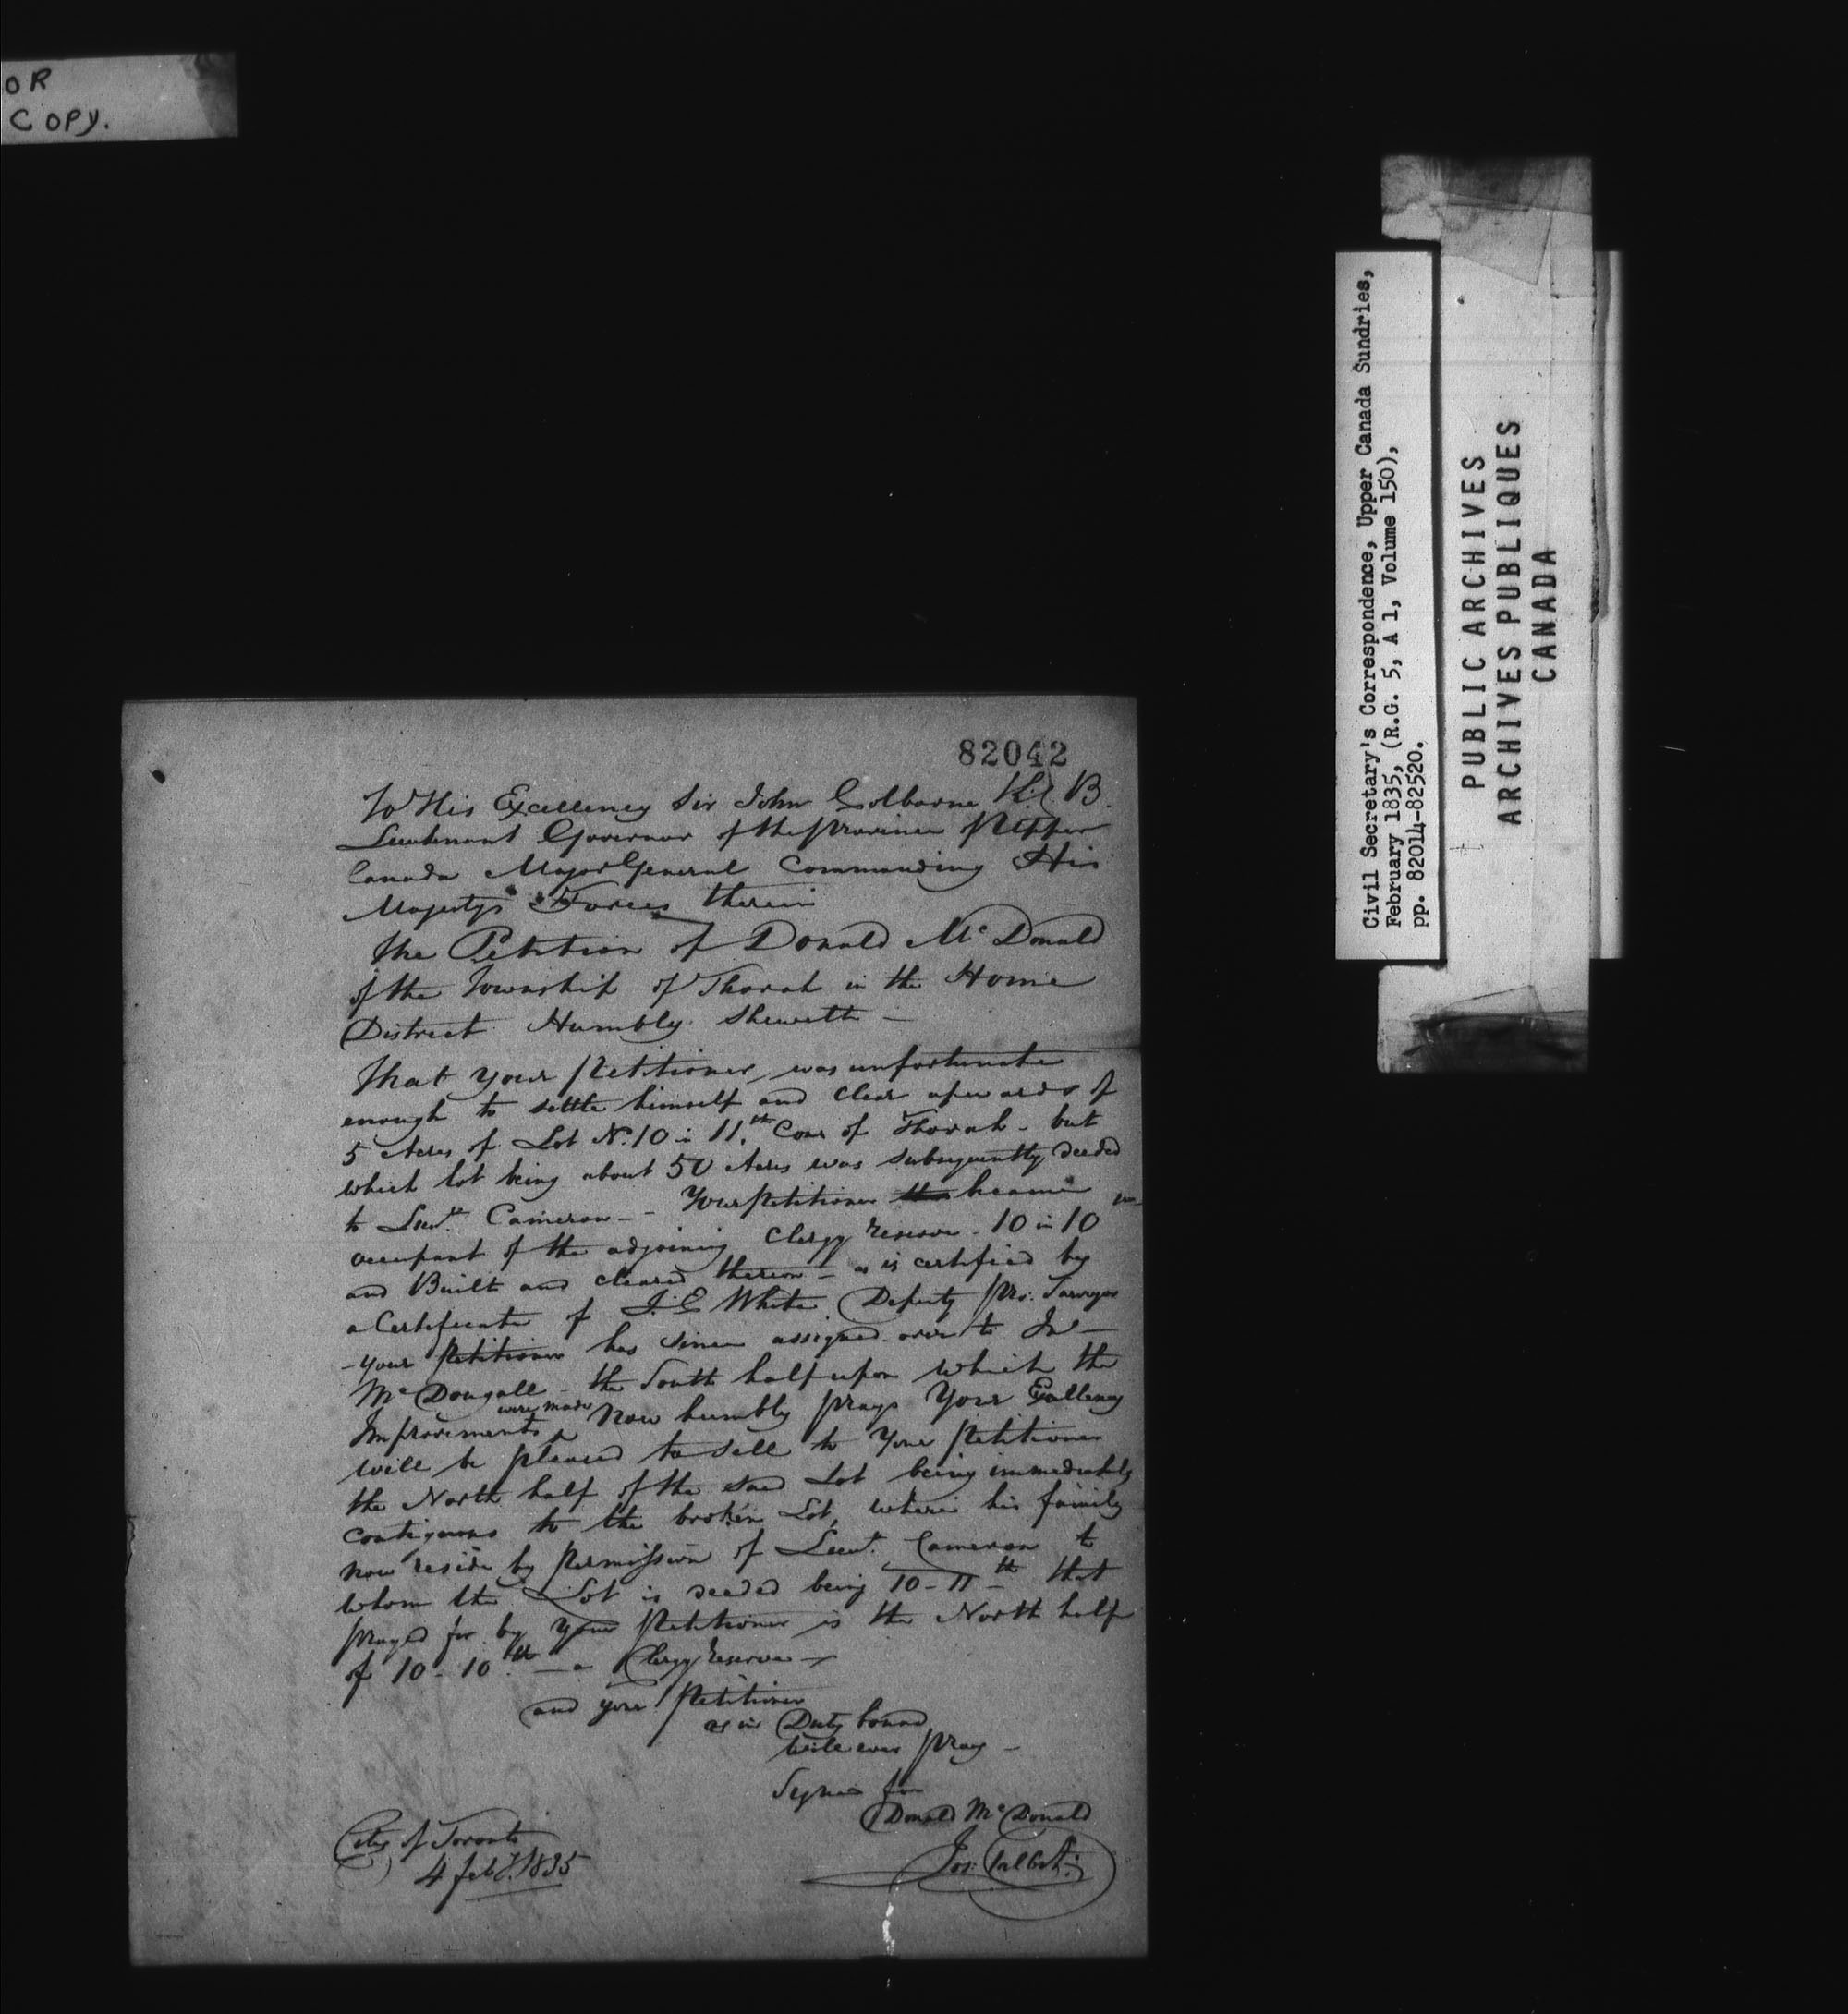 OR
COPY.
82042
To His Excellency Sir John Colborne K.C.B.
Lieutenant Governor of the Province of Upper
Canada Major General Commanding His
Majestys Forces therein
The Petition of Donald McDonald
of the Township of Thorah in the Home
District Humbly Sheweth –
That your Petitioner was unfortunate
enough to settle himself and clear upwards of
5 Acres of Lot No. 10 in 11.th Con of Thorah – but
which lot being about 50 Acres was subsequently deeded
to Lieut. Cameron – – Your Petitioner became
occupant of the adjoining Clergy Reserve – 10 in 10
and Built and cleared thereon – as is certified by
a Certificate of J. E White Deputy Pro: Surveyor
– your Petitioner has since assigned over to Jno –
McDougall – the South half upon which the
Improvements were made Now humbly prays Your Excellency
will be pleased to sell to Your Petitioner
the North half of the said Lot being immediately
contiguous to the broken Lot, where his family
now reside by Permission of Lieut. Cameron to
whom the Lot is deeded being 10 – 11th that
prayed for by your Petitioner is the North half
of 10 – 10.th – a Clergy Reserve –
and your Petitioner
as in Duty bound
will ever pray –
Signed for
Donald McDonald
Jos: Talbot
City of Toronto
4 Feby. 1835
Civil Secretary's Correspondence, Upper Canada Sundries,
February 1835, (R.G. 5, A 1, Volume 150),
pp. 82014-82520.
PUBLIC ARCHIVES
ARCHIVES PUBLIQUES
CANADA